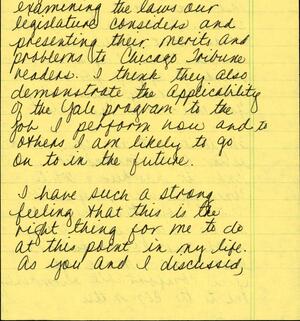 examining the laws our
legislature considers and
presenting their merits and
problems to Chicago Tribune
readers. I think they also
demonstrate the applicability
of the Yale program to the
job I perform now and to
others I am likely to go
on to in the future.
I have such a strong
feeling that this is the
right thing for me to do
at this point in my life.
As you and I discussed,